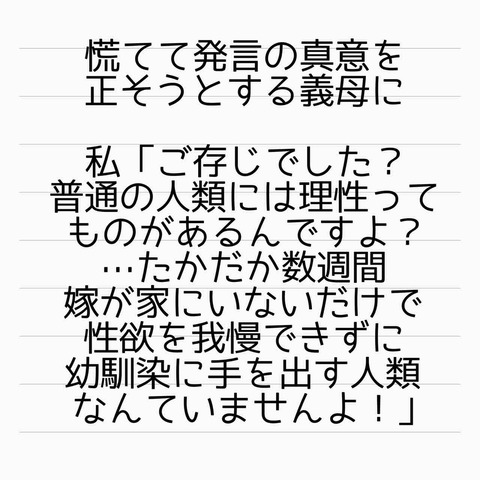 慌てて発言の真意を
正そうとする義母に
私「ご存じでした？
普通の人類には理性って
ものがあるんですよ？
…たかだか数週間
嫁が家にいないだけで
性欲を我慢できずに
幼馴染に手を出す人類
なんていませんよ！」